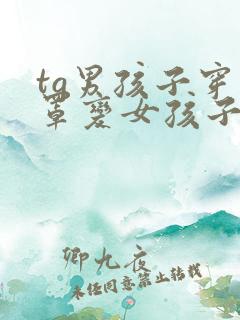 tg男孩子穿
罩变女孩子
卿九夜
未经同意禁止转载